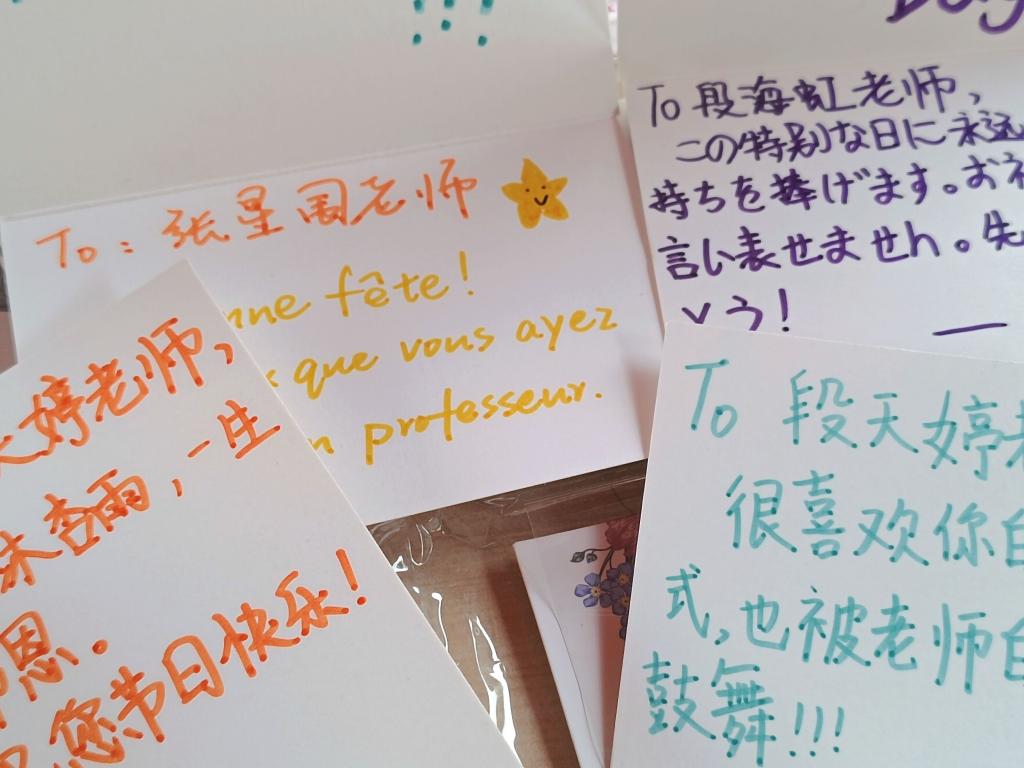 !!!
To: 张星国老师
nne fête!
que vous ayez
professeur.
To 段海虹老师,
この特别な日に永远
持ちを捧げます。お
言い表せません。先
とう!
婷老师,
杏雨,一生
恩.
您节日快乐!
To 段天婷老
很喜欢你自
式,也被老师自
鼓舞!!!